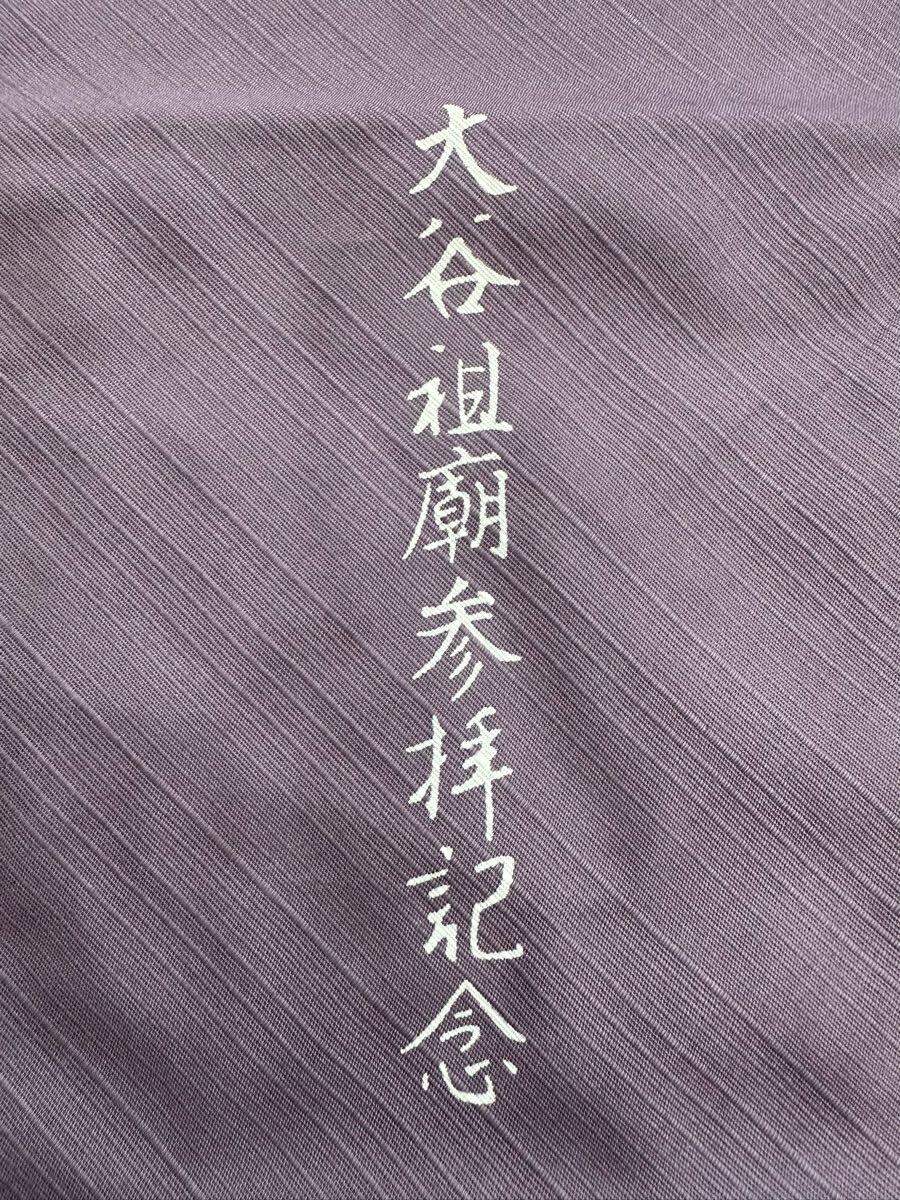 大谷祖廟参拝記念